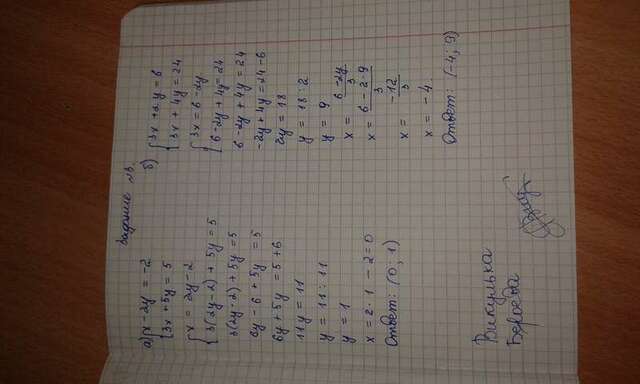 Задание №3.
а) { x - 2y = -2
{ 3x + 5y = 5
{ x = 2y - 2
{ 3(2y-2) + 5y = 5
3(2y-2) + 5y = 5
6y - 6 + 5y = 5
6y + 5y = 5 + 6
11y = 11
y = 11 : 11
y = 1
x = 2 · 1 - 2 = 0
Ответ: (0 ; 1)
б) { 3x + 2y = 6
{ 3x + 4y = 24
{ 3x = 6 - 2y
{ 6 - 2y + 4y = 24
6 - 2y + 4y = 24
-2y + 4y = 24 - 6
2y = 18
y = 18 : 2
y = 9
x = (6 - 2y)/3
x = (6 - 2 · 9)/3
x = -12/3
x = -4.
Ответ: (-4 ; 9)
Викулька
Бероева